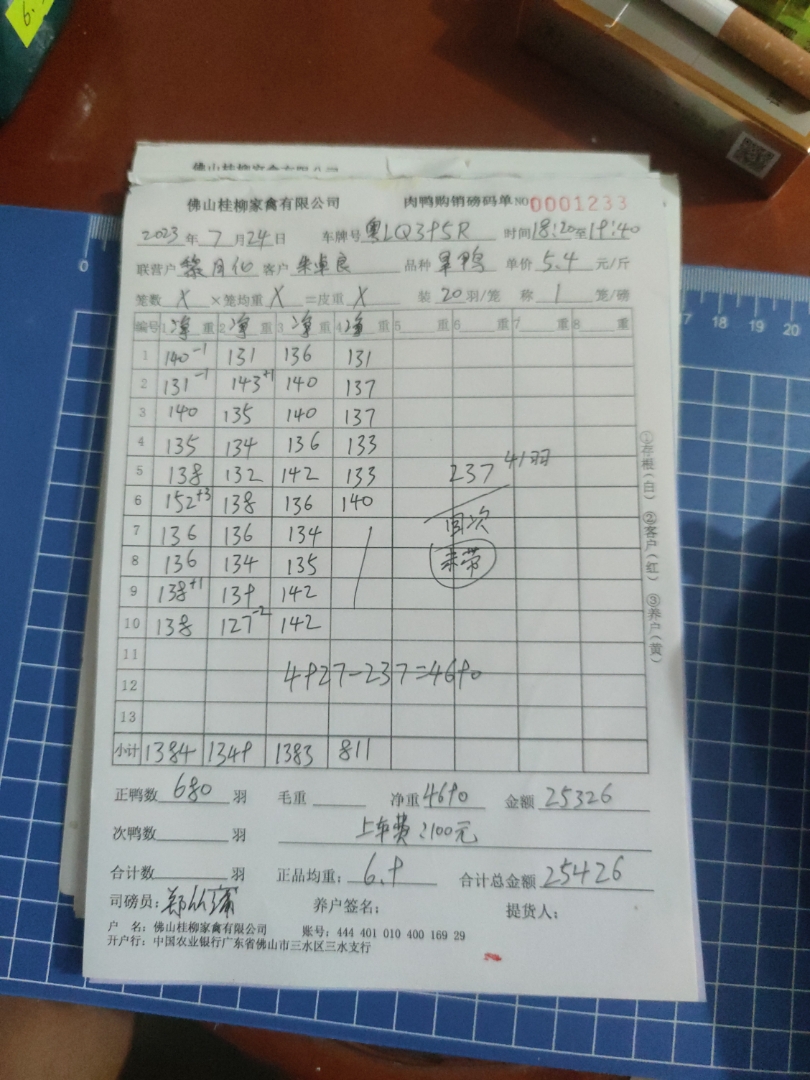 佛山桂柳家禽有限公司 肉鸭购销磅码单 NO 0001233
2023年7月24日 车牌号 粤LQ395R 时间18:20至19:40
联营户 黎月化 客户 朱卓良 品种 旱鸭 单价 5.4 元/斤
笼数 X ×笼均重 X =皮重 X 装 20 羽/笼 称 1 笼/磅
编号 1净重 2净重 3净重 4净重 5 重 6 重 7 重 8 重
1 140-1 131 136 131
2 131-1 143+1 140 137
3 140 135 140 137
4 135 134 136 133
5 138 132 142 133 237 41羽
6 152+3 138 136 140
7 136 136 134 回次
8 136 134 135 未带
9 138+1 139 142
10 138 127-2 142
11
12 4927-237=4690
13
小计 1384 1349 1383 811
正鸭数 680 羽 毛重 净重 4690 金额 25326
次鸭数 羽 上车费:100元
合计数 羽 正品均重: 6.9 合计总金额 25426
司磅员: 养户签名: 提货人:
户 名: 佛山桂柳家禽有限公司 账号: 444 401 010 400 169 29
开户行: 中国农业银行广东省佛山市三水区三水支行
①存根(白) ②客户(红) ③养户(黄)
0
17 18 19 20
6.